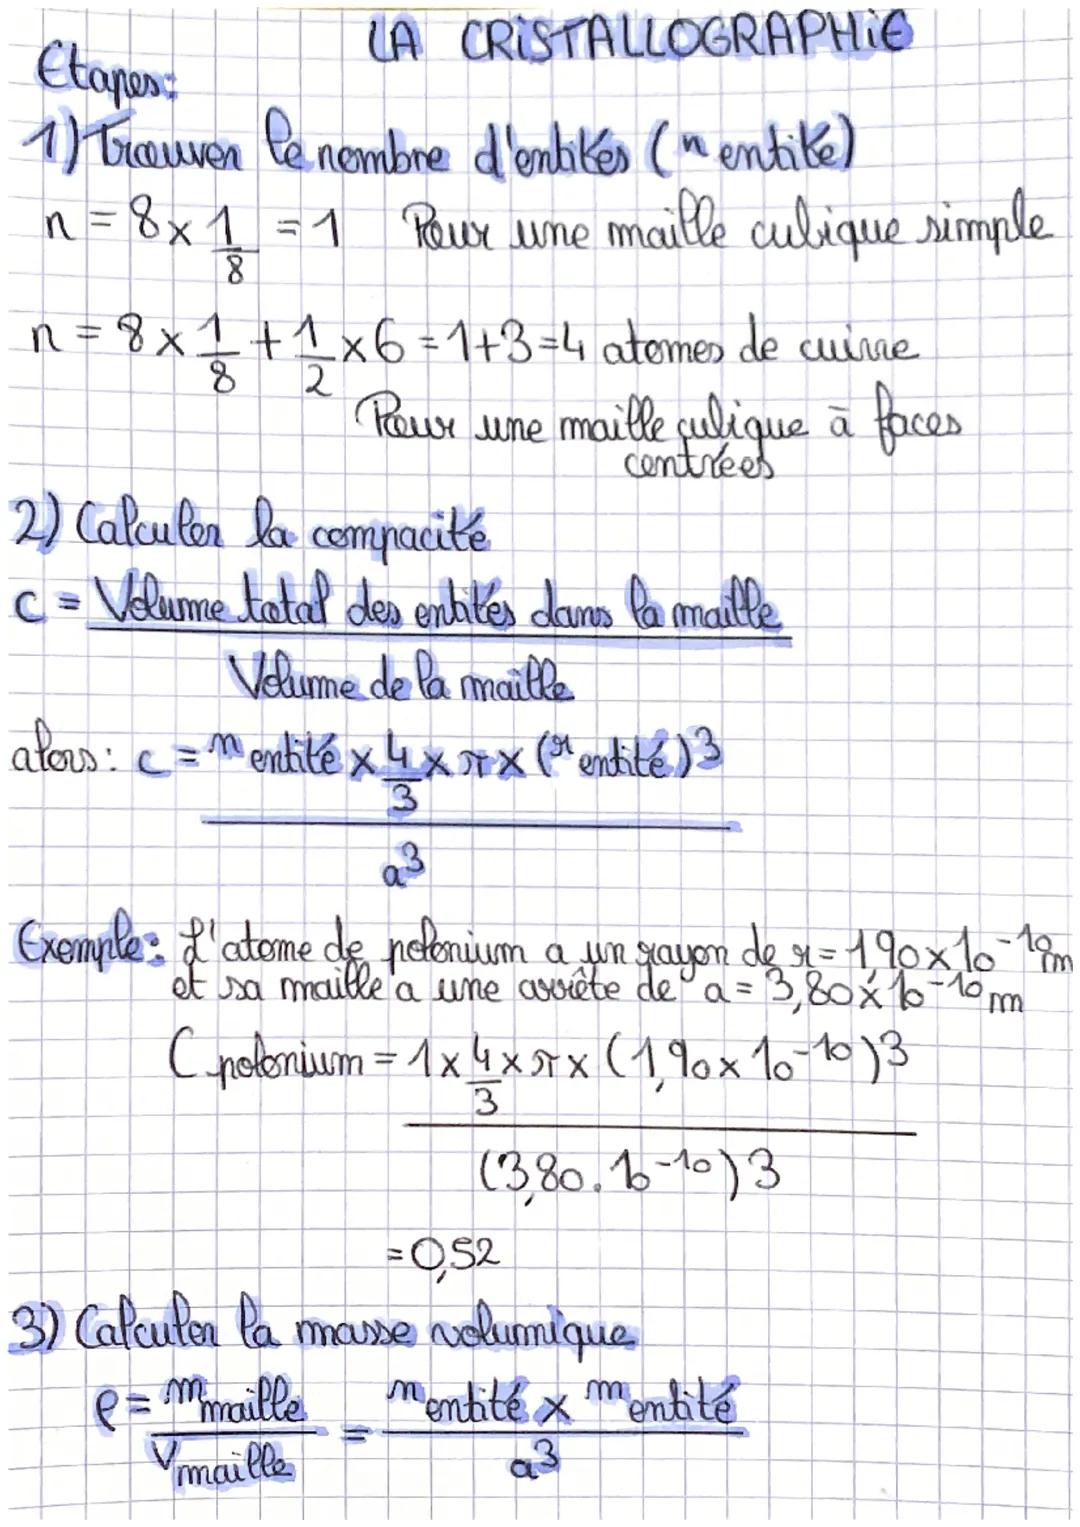 LA CRISTALLOGRAPHIE
Etapes:
1) Trouver le nombre d'entités (n entité)
n = 8 x 1/8 = 1 Pour une maille cubique simple
n = 8 x 1/8 + 1/2 x 6 = 1+3=4 atomes de cuivre
Pour une maille cubique à faces
centrées
2) Calculer la compacité
c = Volume total des entités dans la maille
Volume de la maille
alors: c = n entité x 4/3 x π x (r entité)3
a3
Exemple: L'atome de polonium a un rayon de r = 190 x 10-10m
et sa maille a une arrête de a = 3,80 x 10-10 m
C polonium = 1 x 4/3 x π x (1,90 x 10-10)3
(3,80. 10-10)3
= 0,52
3) Calculer la masse volumique
ρ = m maille / V maille = n entité x m entité / a3